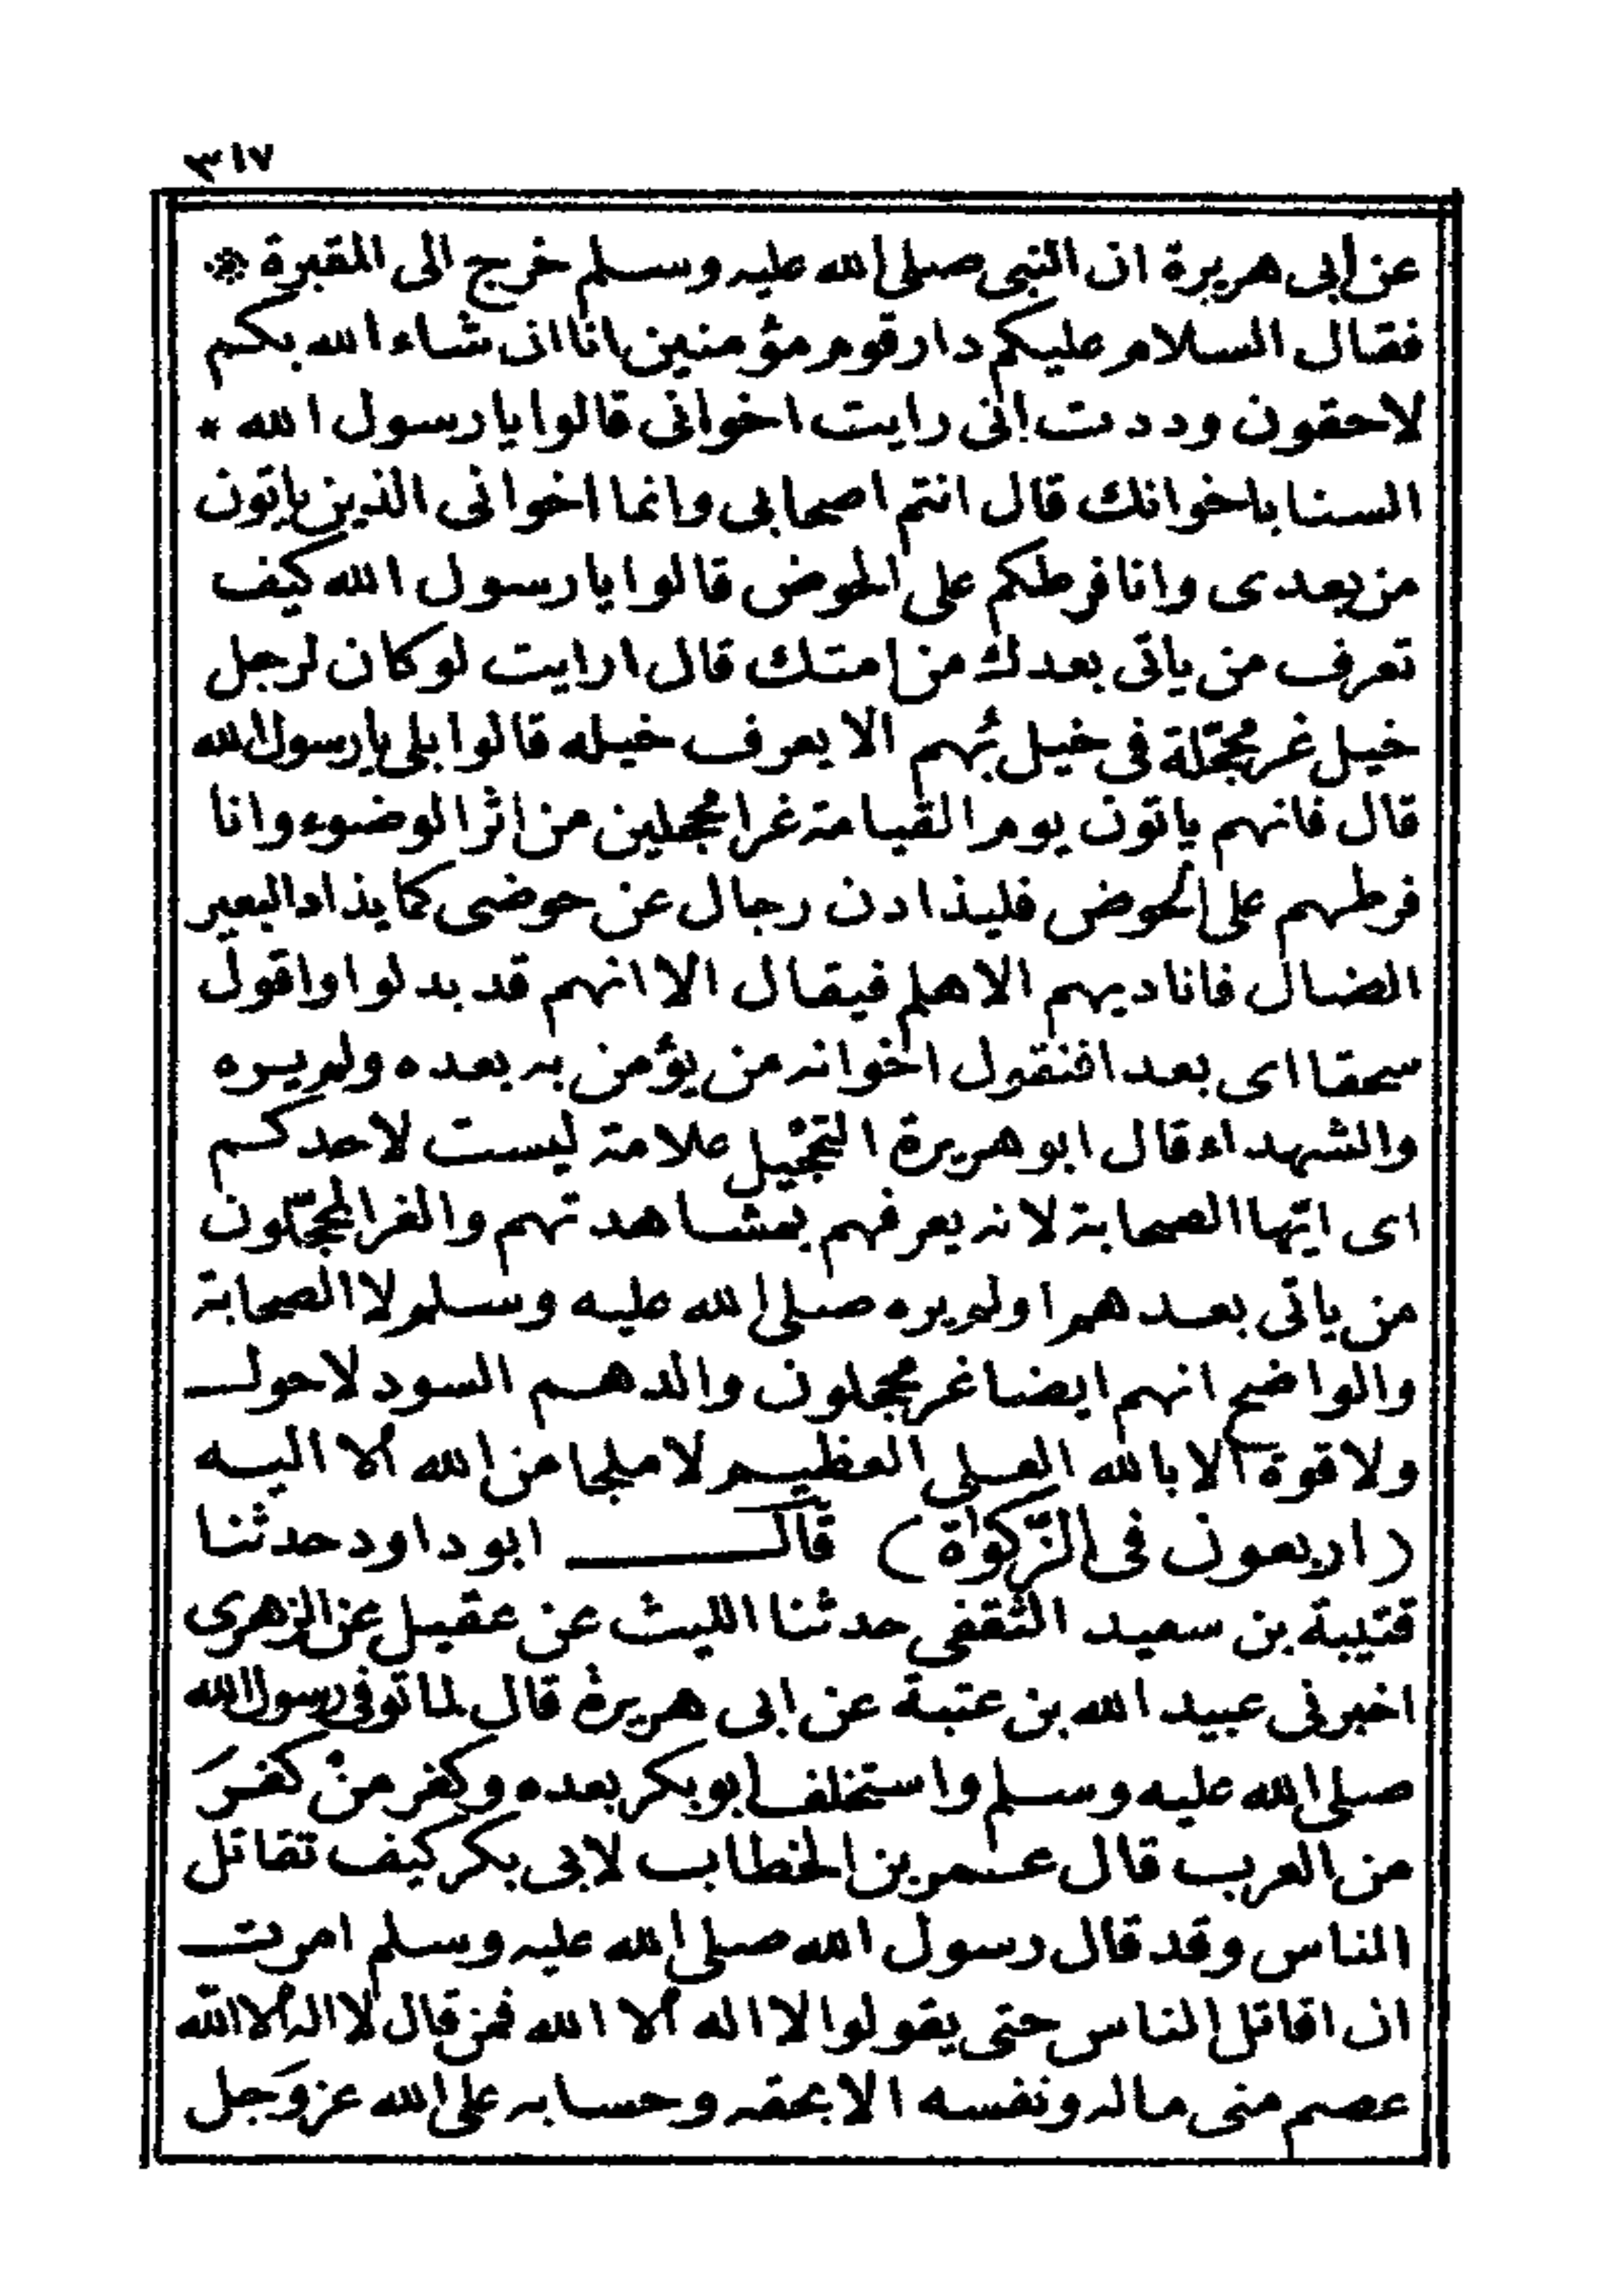 ٣١٧
عن ابى هريرة ان النبى صلى الله عليه وسلم خرج الى المقبرة *
فقال السلام عليكم دار قوم مؤمنين انا ان شاء الله بكم
لاحقون وددت انى رايت اخوانى قالوا يا رسول الله *
السنا باخوانك قال انتم اصحابى وانما اخوانى الذين ياتون
من بعدى وانا فرطكم على الحوض قالوا يا رسول الله كيف
تعرف من ياتى بعدك من امتك قال ارايت لو كان لرجل
خيل غر محجّلة فى خيل بُهم الا يعرف خيله قالوا بلى يا رسول الله
قال فانهم ياتون يوم القيامة غرا محجلين من اثر الوضوء وانا
فرطهم على الحوض فليذادن رجال عن حوضى كما يذاد البعير
الضال فاناديهم الا هلم فيقال الا انهم قد بدلوا واقول
سحقا اى بعدا فنقول اخوانه من يؤمن به بعده ولم يره
والشهداء قال ابو هريرة التحجيل علامة ليست لاحدكم
اى ايّها الصحابة لانه يعرفهم بمشاهدتهم والغر المحجّلون
من ياتى بعدهم اولم يره صلى الله عليه وسلم لا الصحابة
والواضح انهم ايضا غر محجلون والدهم السود لاحول
ولا قوة الا بالله العلى العظيم لا ملجا من الله الا اليه
(اربعون فى الزّكوٰة) قال ابو داود حدثنا
قتيبة بن سعيد الثقفى حدثنا الليث عن عقيل عن الزهرى
اخبرنى عبيد الله بن عتبة عن ابى هريرة قال لما توفى رسول الله
صلى الله عليه وسلم واستخلف ابو بكر بعده وكفر منْ كفرَ
من العرب قال عمر بن الخطاب لابى بكر كيف تقاتل
الناس وقد قال رسول الله صلى الله عليه وسلم امرت
ان اقاتل الناس حتى يقولوا لا اله الا الله فمن قال لا اله الا الله
عصم منى ماله ونفسه الا بحقه وحسابه على الله عز وَجل